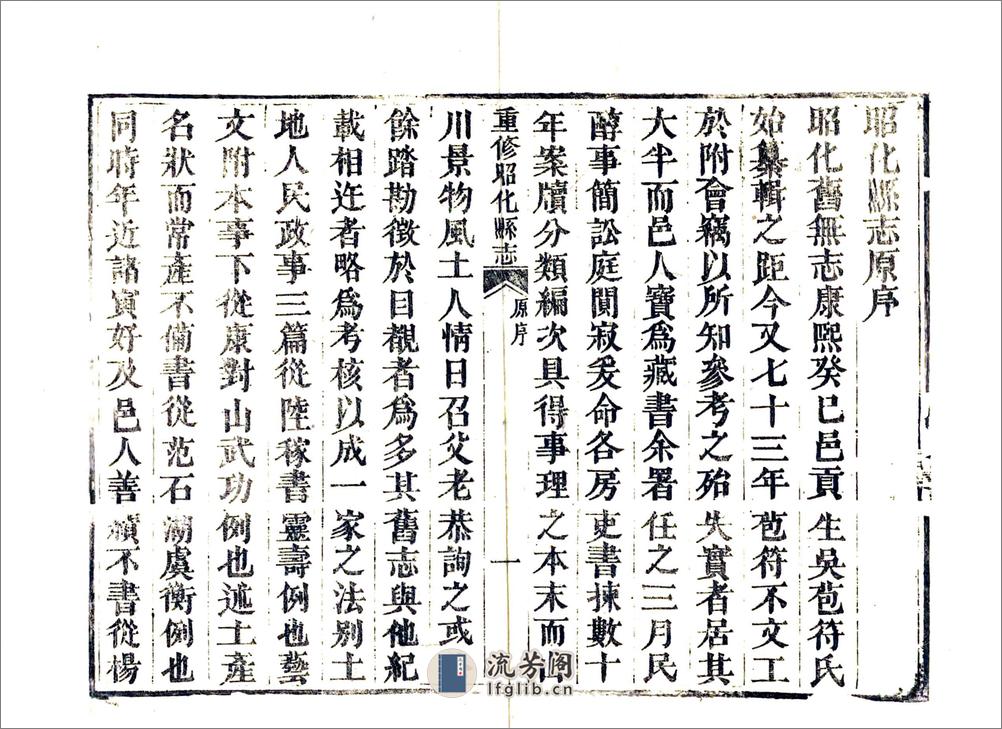 昭化縣志原序
昭化舊無志康熙癸巳邑貢生吳苞符氏
始纂輯之距今又七十三年苞符不文工
於附會竊以所知參考之殆失實者居其
大半而邑人寶爲藏書余署任之三月民
醇事簡訟庭闃寂爰命各房吏書揀數十
年案牘分類編次具得事理之本末而山
重修昭化縣志
原序
一
川景物風土人情日召父老恭詢之或
餘踏勘徵於目覩者爲多其舊志與他紀
載相迕者略爲考核以成一家之法別土
地人民政事三篇從陸稼書靈壽例也藝
文附本事下從康對山武功例也述土產
名狀而常產不備書從范石湖虞衡例也
同時年近諸寅好及邑人善績不書從楊
流芳阁
lfglib.cn